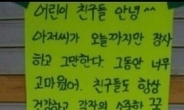 어린이 친구들 안녕^^
아저씨가 오늘까지만 장사
하고 그만한다. 그동안 너무
고마웠어. 친구들도 항상
건강하고 각자의 소중한 꿈